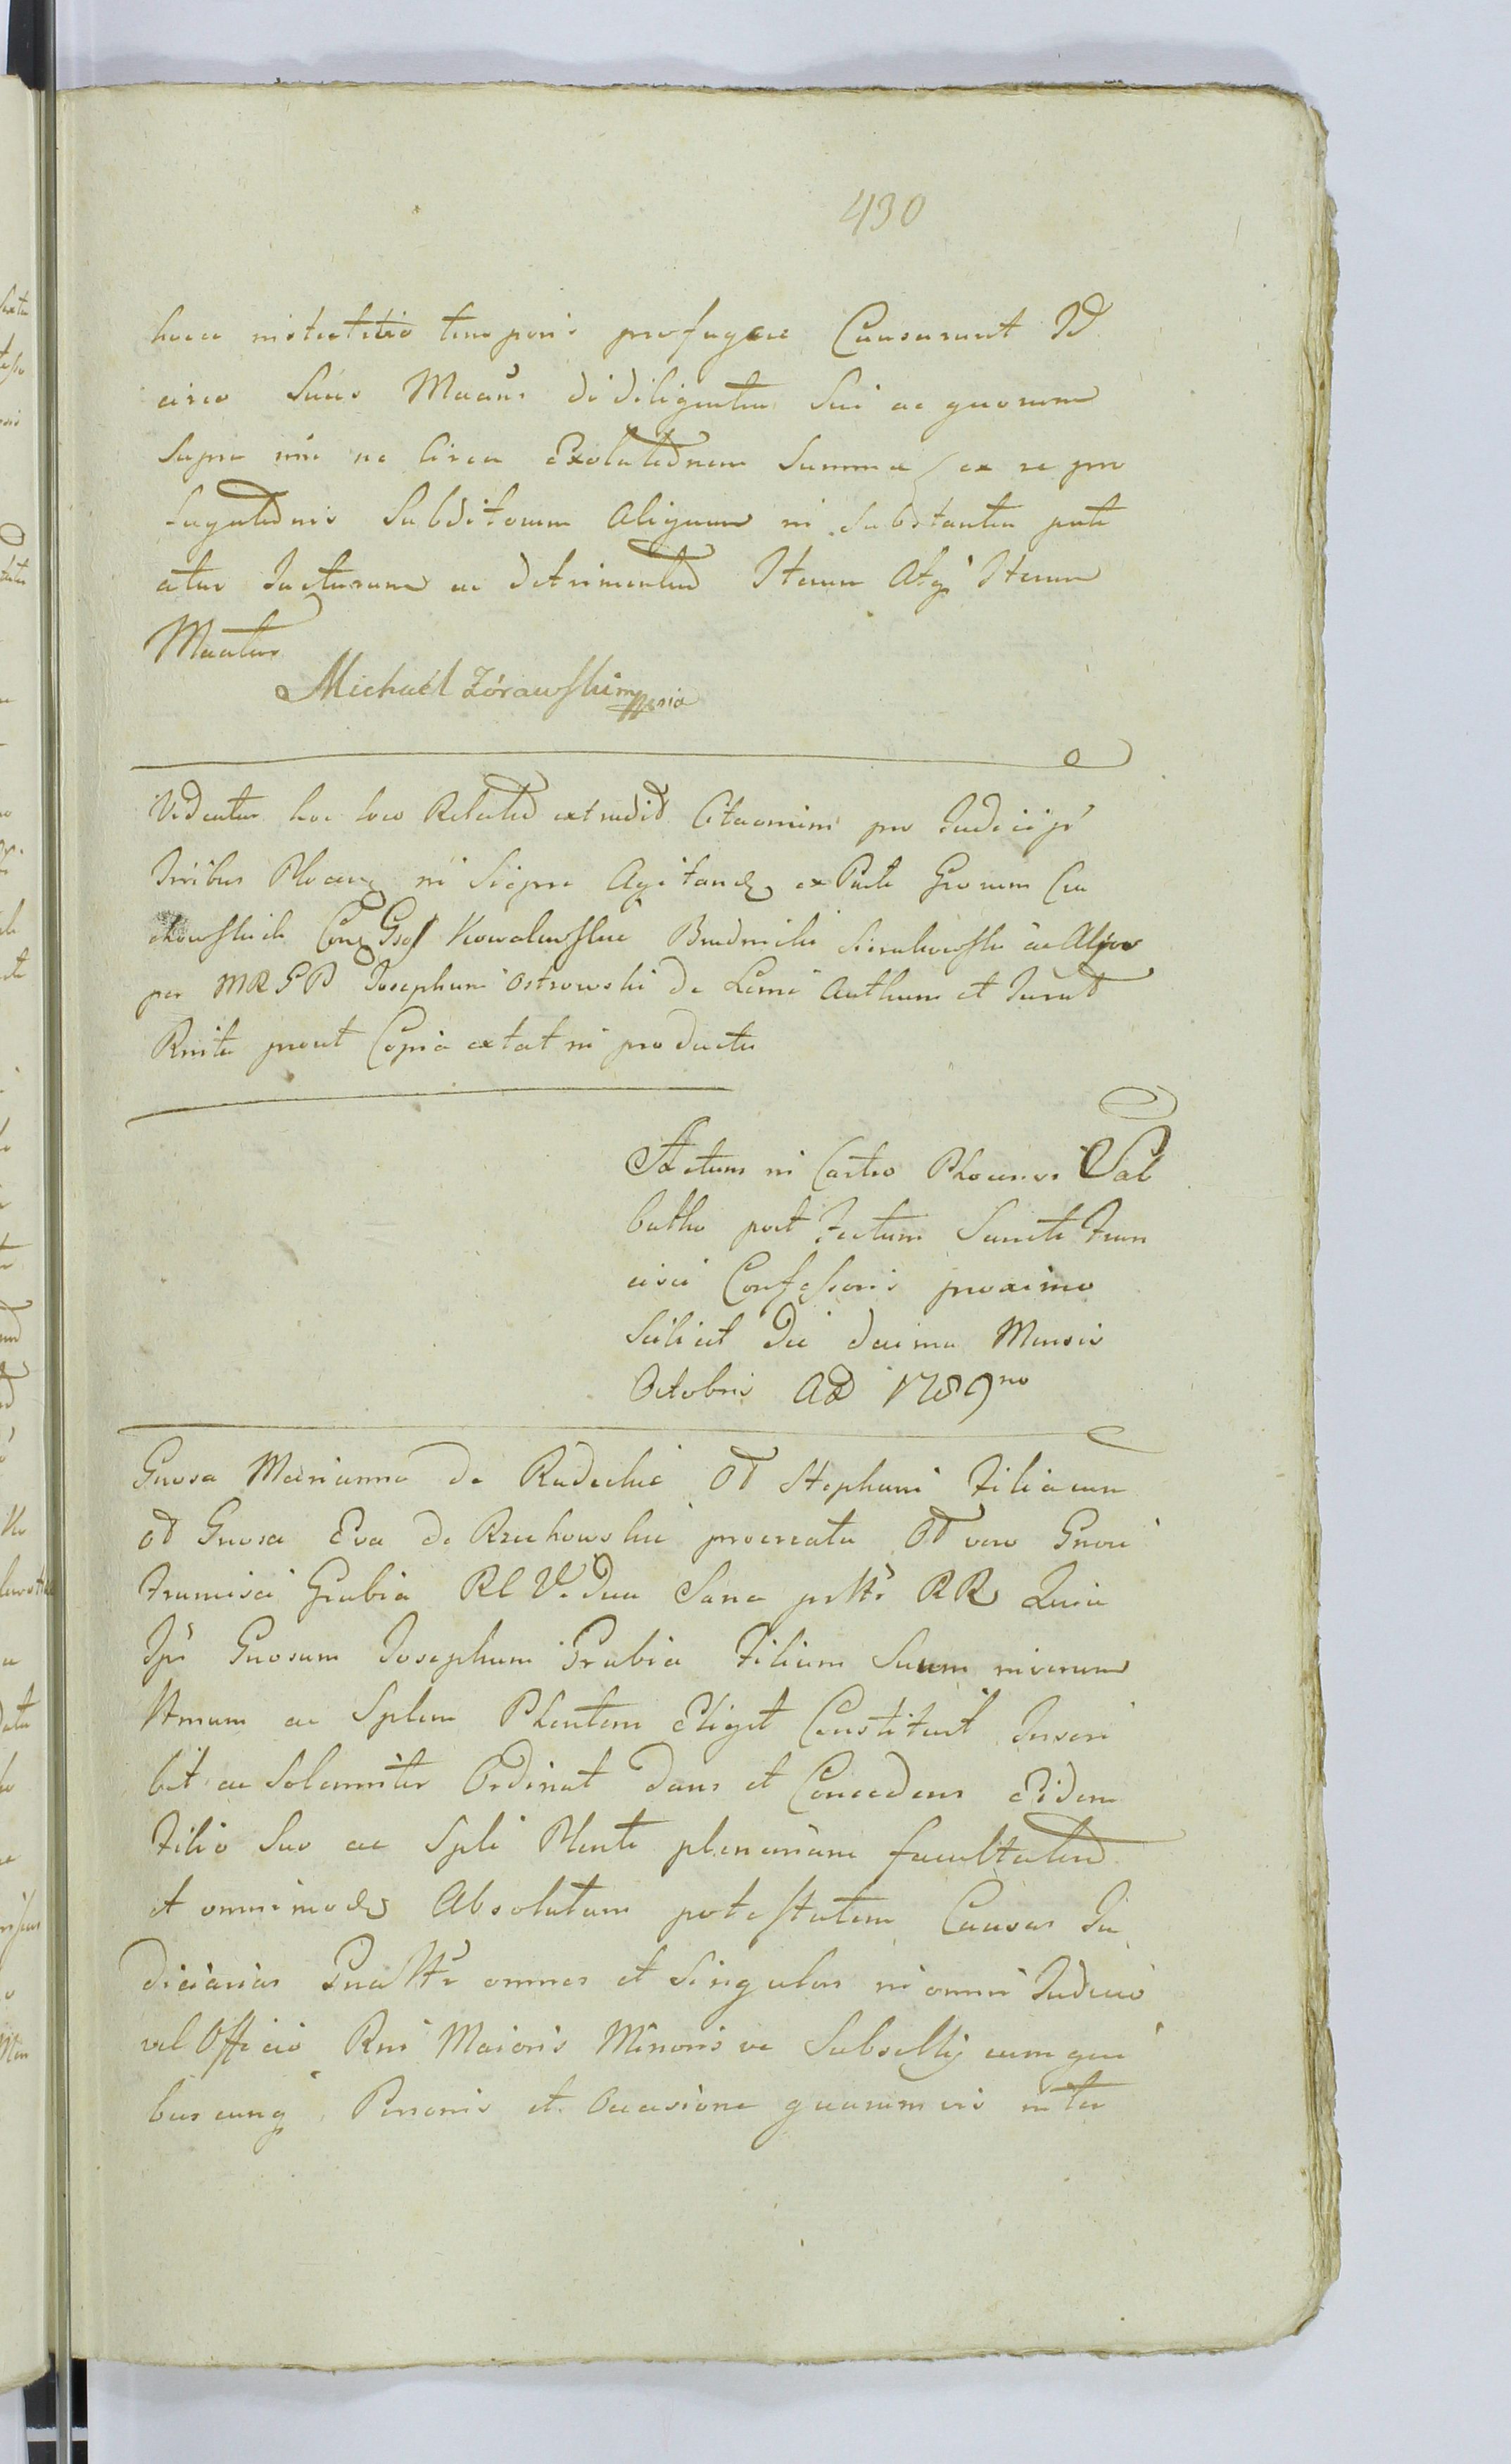 430
hocce tempori profugae Causarunt Id
circo Suus Mcaur di diligentia Sui ac quorum
Supra ne circa Exolutednem Summa ex re pro
fugatednis Subditorum Aliquam in Substantia pati
atur Jacturam ac detrimentud Iterum Atq Iterum
Mcatur
Michael Zórawski mppria
Videntur hoc loco Related extradid Citaomim pro Judiciis
Tribus Plocen in Siepre Agitand ex Parte Grorum Cie
chowskich Con Gsos Kowalewskie Budmilii Sierakowski ac Alios
per MRGD Josephum Ostrowski de Lime Authum et Jurat
Rnite prout Copia extat in producta
Actum in Castro Plocensi Sab
batho post Festum Sancti Fran
cisci Confessoris proximo
Scilicet Die decima Mensis
Octobris AD 1789no
Gnosa Marianna de Radeckie OT Stephani Filia cum
OT Gnosa Eva de Rzechowskie procreata OT vero Gnosi
Francisci Grabia RL Vidua Sana RR Quia
Ipse Gnosum Josephum Grabia Filium Suum in verum
ac Splem Plentem Eligit Constituit Inscri
bit ac Solemniter Ordinat Dans et Concedens Eidem
Filio Suo ac Spli Plenti plenariam facultated
et omnimod Absolutam potestatem Causas Ju
diciarias omnes et Singulas in omni Judicio
vel Officio Rni Maioris Minoris ve Subsellij cum qui
buscunq Personis et Occasione quarumvis